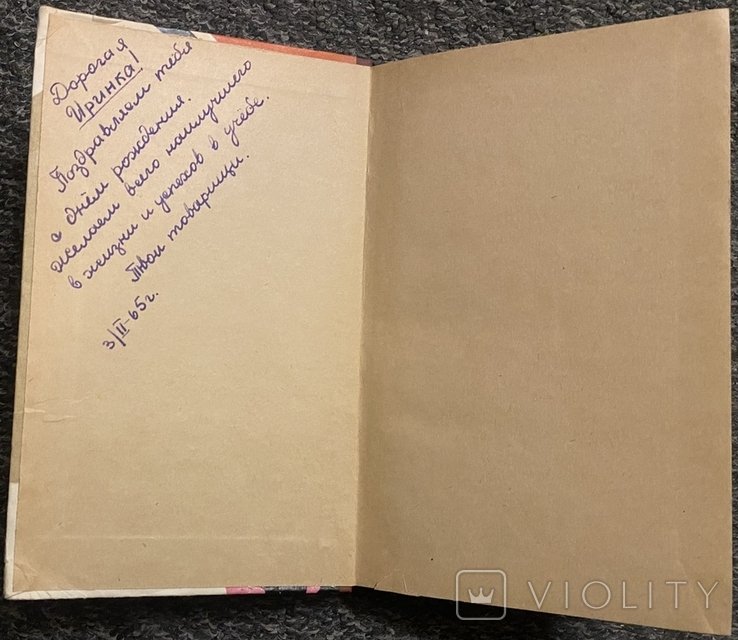 Дорогая
Иринка!
Поздравляем тебя
с днём рождения.
желаем всего наилучшего
в жизни и успехов в учёбе.
Твои товарищи.
3/II-65г.
VIOLITY